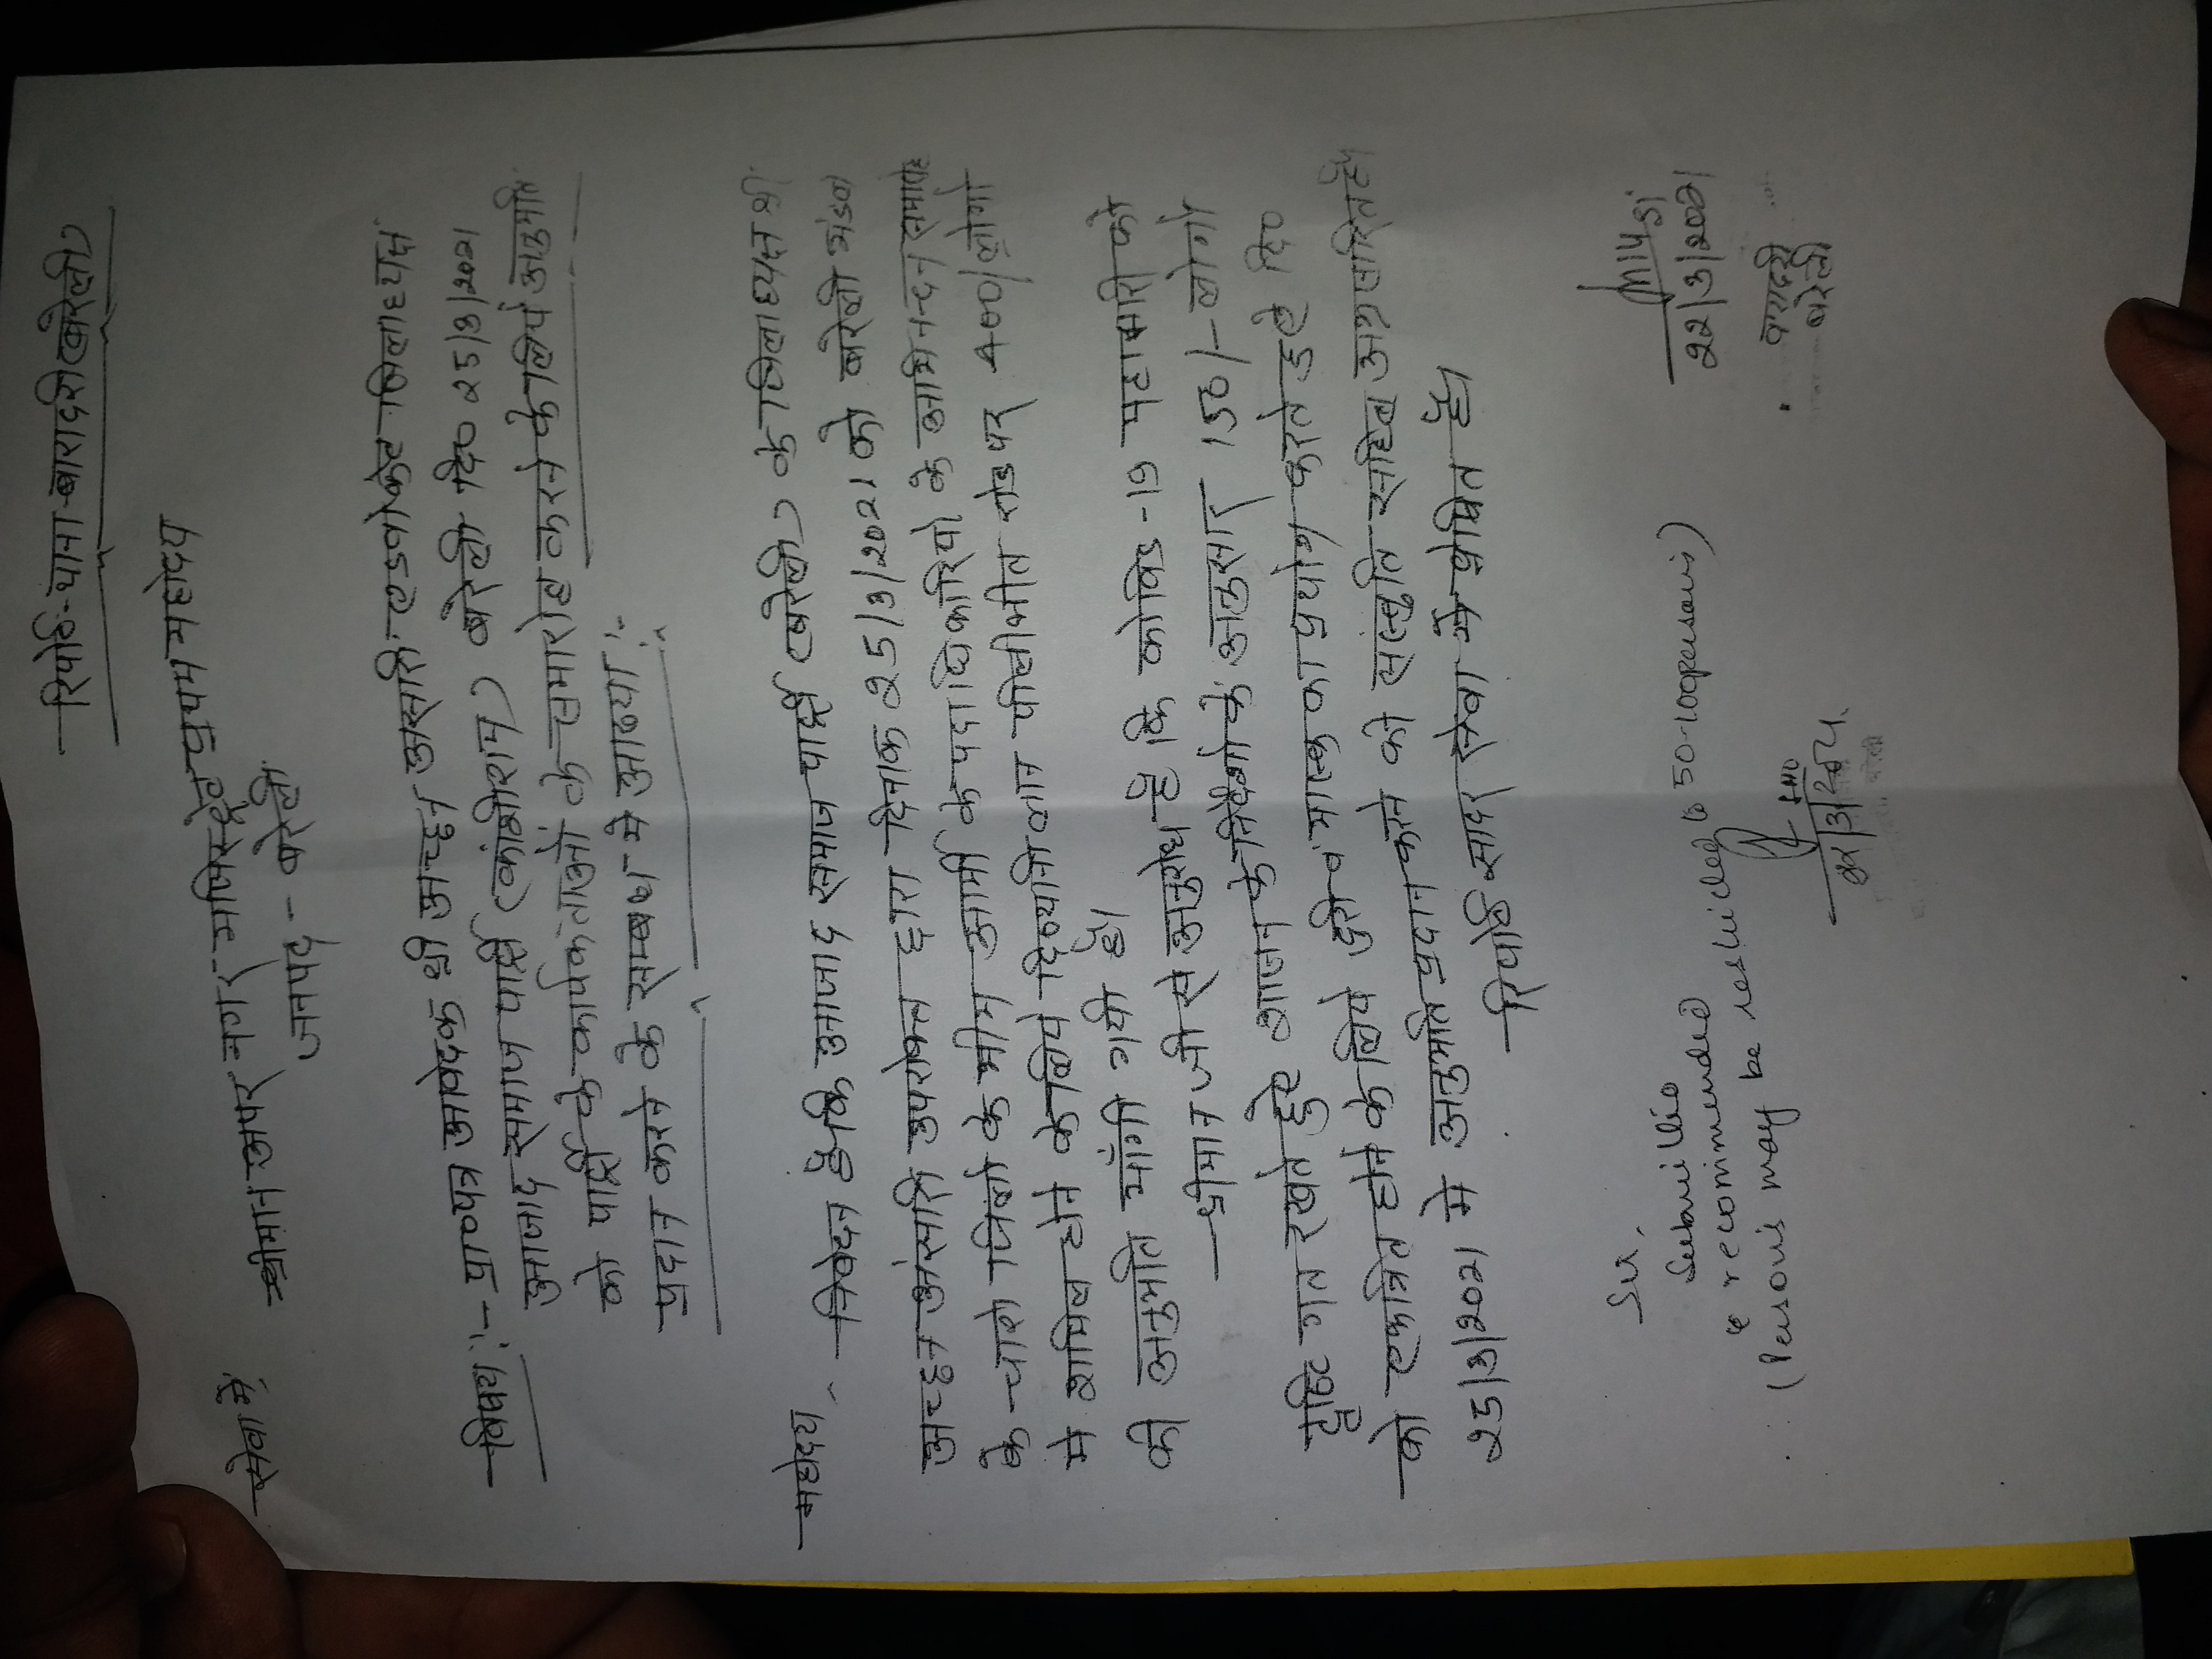 रिपोर्ट-थाना-बारादरी (बरेली)
सेवा में,
श्रीमान अपर नगर मजिस्ट्रेट प्रथम महोदय
जनपद - बरेली
विषय :- प्रा०पत्र आवेदक श्री अच्छन अंसारी एडवोकेट जिलाध्यक्ष
आजाद समाज पार्टी (कांशीराम) बरेली दि० 25/3/2021
को पार्टी के कार्यकर्ताओं के समारोह करने के लिये अनुमति
प्रदान करने के सम्बन्ध मे आख्या :-
महोदय,
निवेदन है कि आजाद समाज पार्टी (बरेली) के जिलाध्यक्ष श्री
अच्छन अंसारी उपरोक्त द्वारा दिनाक 25/3/2021 को बरेली मंडल
के चारो जिलो के भीम आर्मी के पदाधिकारियो के अभिनन्दन समारोह
मे शामिल होने के लिये दिव्यानी लान पीलीभीत रोड पर 400/लोगो
की अनुमति माँगी गयी है।
श्रीमान जी से अनुरोध है कि कोविड-19 महामारी को
दृष्टिगत रखते हुऐ शासन के निर्देशो के अनुसार 150/- लोगो
को एकत्रित होने के लिये दुरी व मास्क का प्रयोग करते हुऐ दि०
25/3/2021 मे अनुमति प्रदान करने की संस्तुति सहित अग्रसारित है।
रिपोर्ट सादर सेवा मे प्रेषित है।
Sir,
Submitted
& recommended
(Persons may be restricted to 50-100persons)
SHO
22/3/2021
SI
22/3/2021
बारादरी
बरेली
बरेली